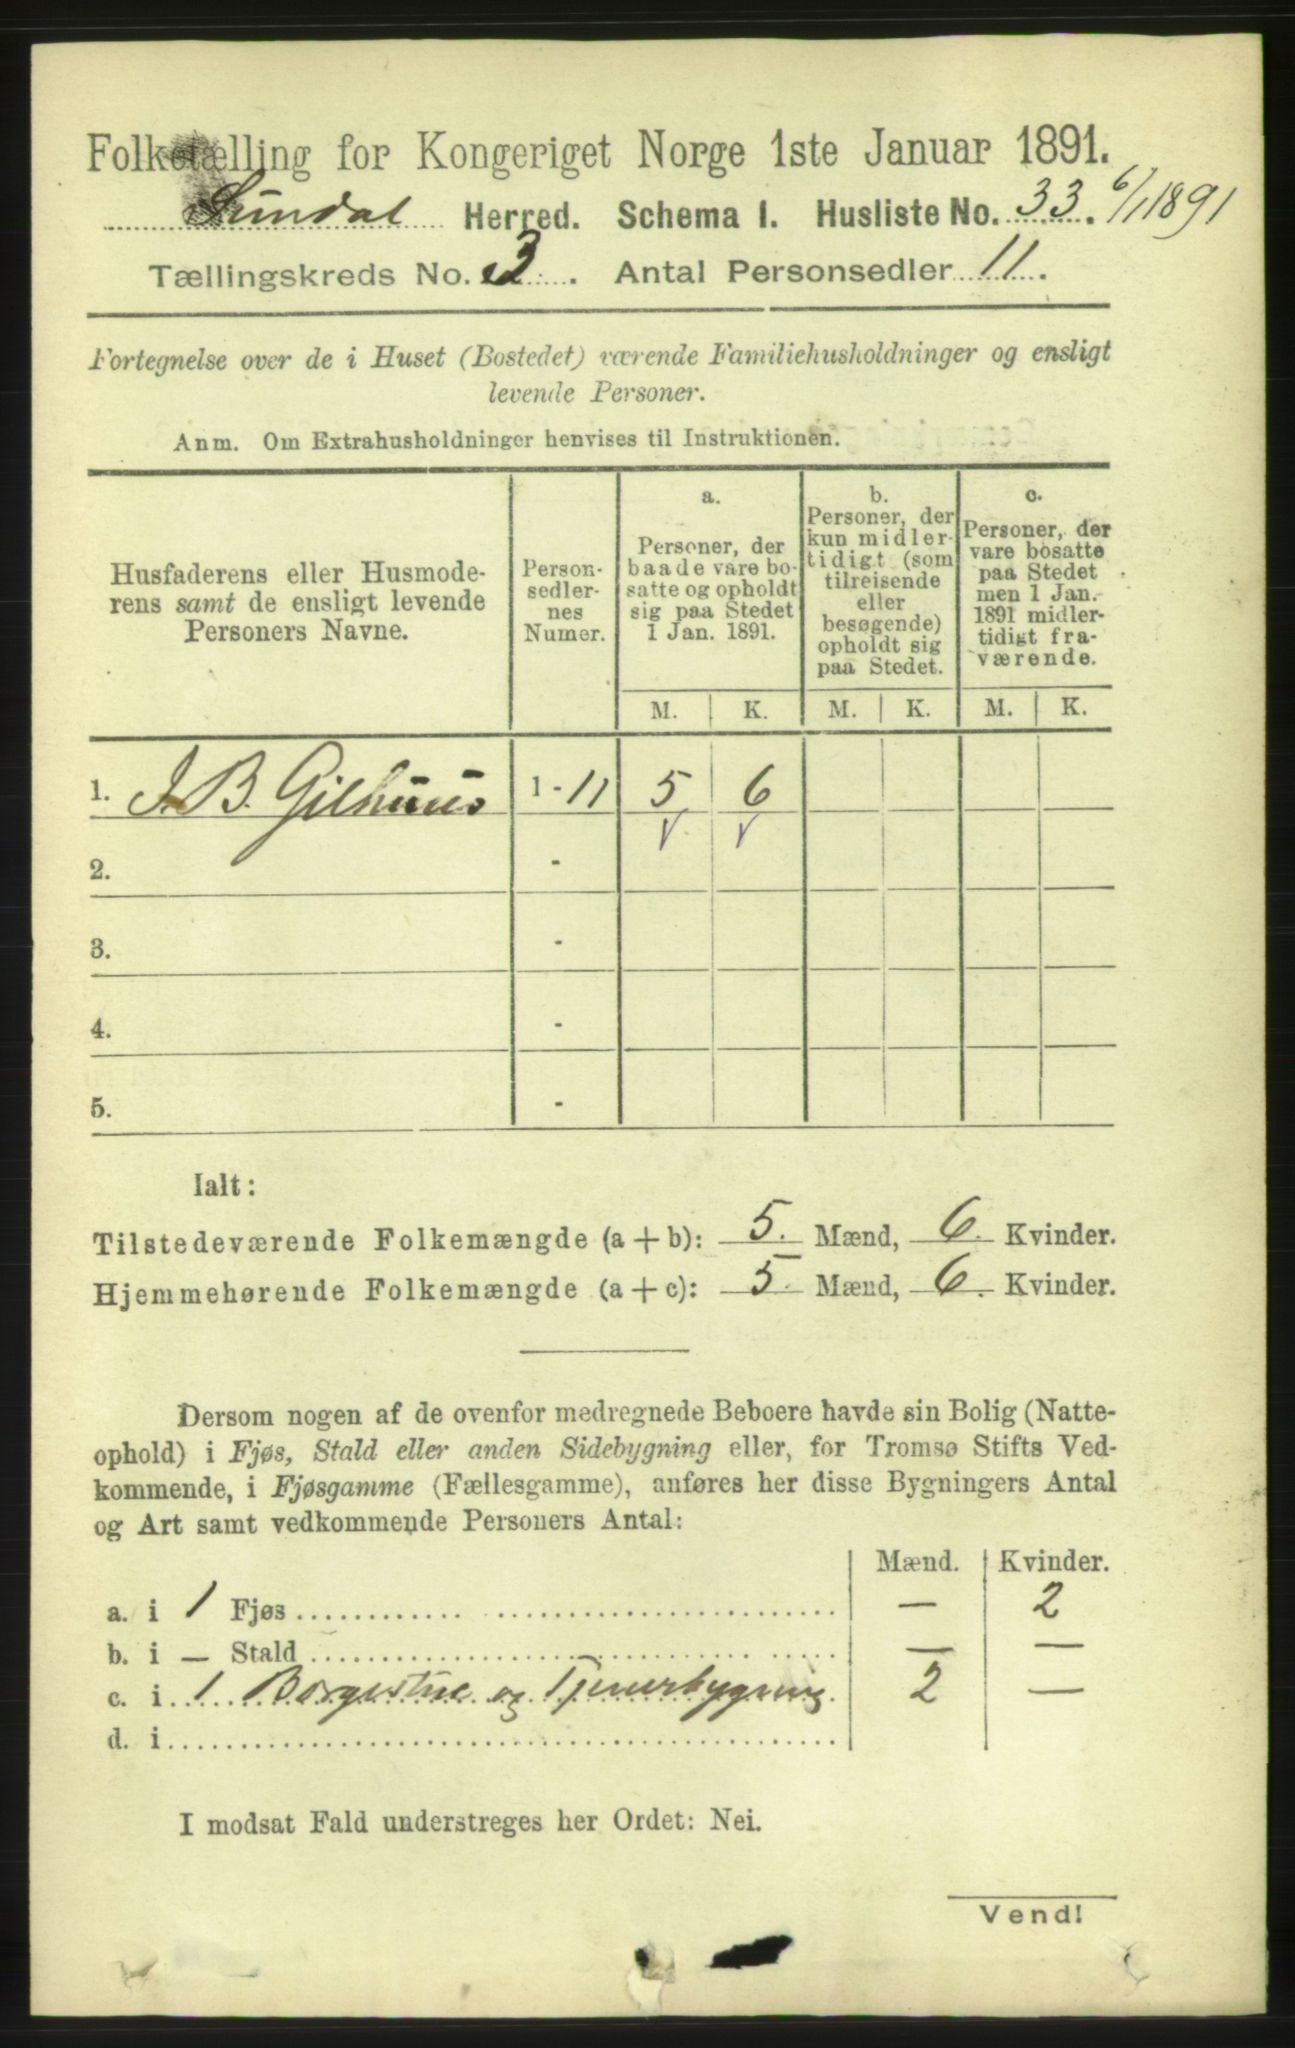 Folketælling for Kongeriget Norge 1ste Januar 1891.
Sundal Herred. Schema I. Husliste No. 33. 6/1 1891
Tællingskreds No. 3. Antal Personsedler 11.
Fortegnelse over de i Huset (Bostedet) værende Familiehusholdninger og ensligt
levende Personer.
Anm. Om Extrahusholdninger henvises til Instruktionen.
Husfaderens eller Husmode-
rens samt de ensligt levende
Personers Navne.
Person-
sedler-
nes
Numer.
a.
Personer, der
baade vare bo-
satte og opholdt
sig paa Stedet
1 Jan. 1891.
b.
Personer, der
kun midler-
tidigt (som
tilreisende
eller
besøgende)
opholdt sig
paa Stedet.
c.
Personer, der
vare bosatte
paa Stedet
men 1 Jan.
1891 midler-
tidigt fra-
værende.
M. K. M. K. M. K.
1. J. B. Gilhuus 1-11 5 6
2. -
3. -
4. -
5. -
Ialt:
Tilstedeværende Folkemængde (a+b): 5. Mænd, 6. Kvinder.
Hjemmehørende Folkemængde (a+c): 5. Mænd, 6. Kvinder.
Dersom nogen af de ovenfor medregnede Beboere havde sin Bolig (Natte-
ophold) i Fjøs, Stald eller anden Sidebygning eller, for Tromsø Stifts Ved-
kommende, i Fjøsgamme (Fællesgamme), anføres her disse Bygningers Antal
og Art samt vedkommende Personers Antal:
Mænd. Kvinder.
a. i 1 Fjøs — 2
b. i — Stald — —
c. i 1 Borgestue og Tjenerbygning 2 —
d. i
I modsat Fald understreges her Ordet: Nei.
Vend!